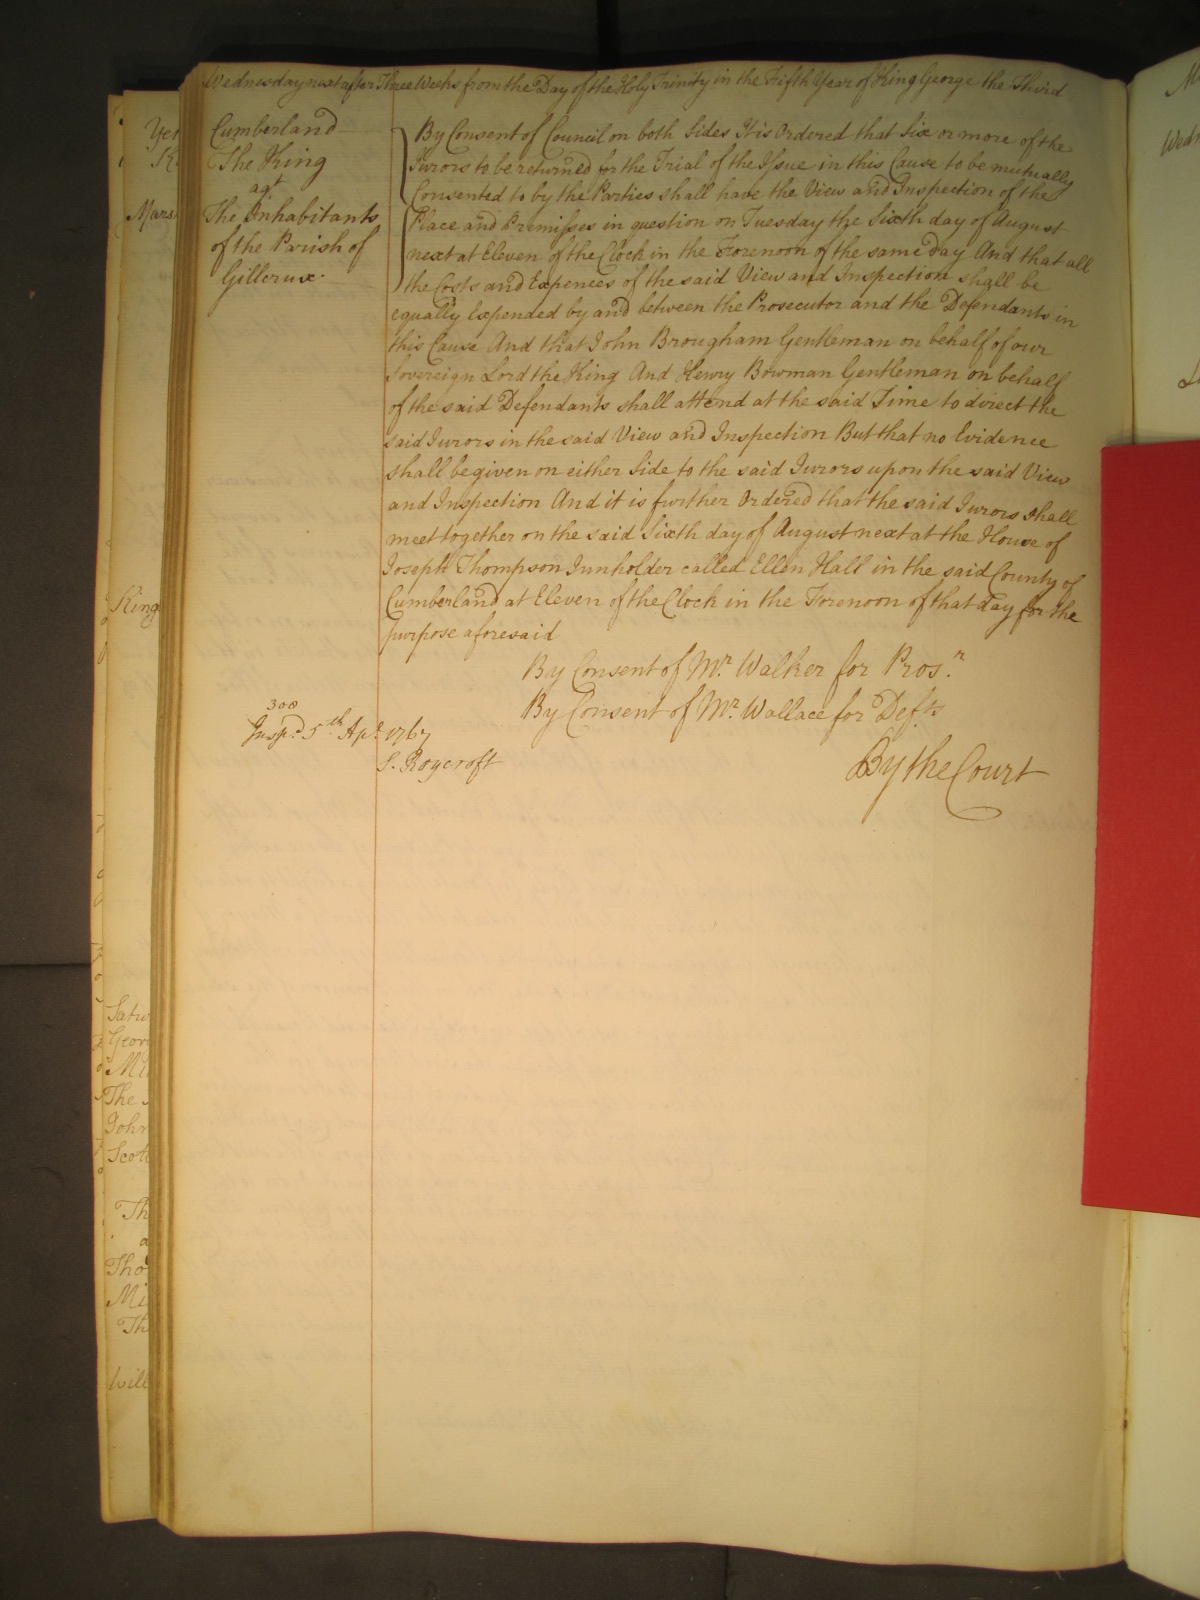 Wednesday next after Three Weeks from the Day of the Holy Trinity in the Fifth Year of King George the Third
Cumberland
The King
agt
The Inhabitants
of the Parish of
Gillcrux.
By Consent of Council on both Sides It is Ordered that Six or more of the
Jurors to be returned for the Trial of the Issue in this Cause to be mutually
Consented to by the Parties shall have the View and Inspection of the
Place and Premisses in question on Tuesday the Sixth day of August
next at Eleven of the Clock in the Forenoon of the same day And that all
the Costs and Expences of the said View and Inspection shall be
equally Expended by and between the Prosecutor and the Defendants in
this Cause And that John Brougham Gentleman on behalf of our
Sovereign Lord the King And Henry Bowman Gentleman on behalf
of the said Defendants shall attend at the said Time to direct the
said Jurors in the said View and Inspection But that no Evidence
shall be given on either Side to the said Jurors upon the said View
and Inspection And it is further Ordered that the said Jurors shall
meet together on the said Sixth day of August next at the House of
Joseph Thompson Innholder called Ellen Hall in the said County of
Cumberland at Eleven of the Clock in the Forenoon of that Day for the
purpose aforesaid
By Consent of Mr. Walker for Pros.r
By Consent of Mr. Wallace for Defts
By the Court
308
Insp.d 5th Apl. 1767
S. Roycroft
Yer
Mars
King
Satu
Geor
Mi
The
John
Scott
Th
a
Tho
Mi
Th
Will
Wedn